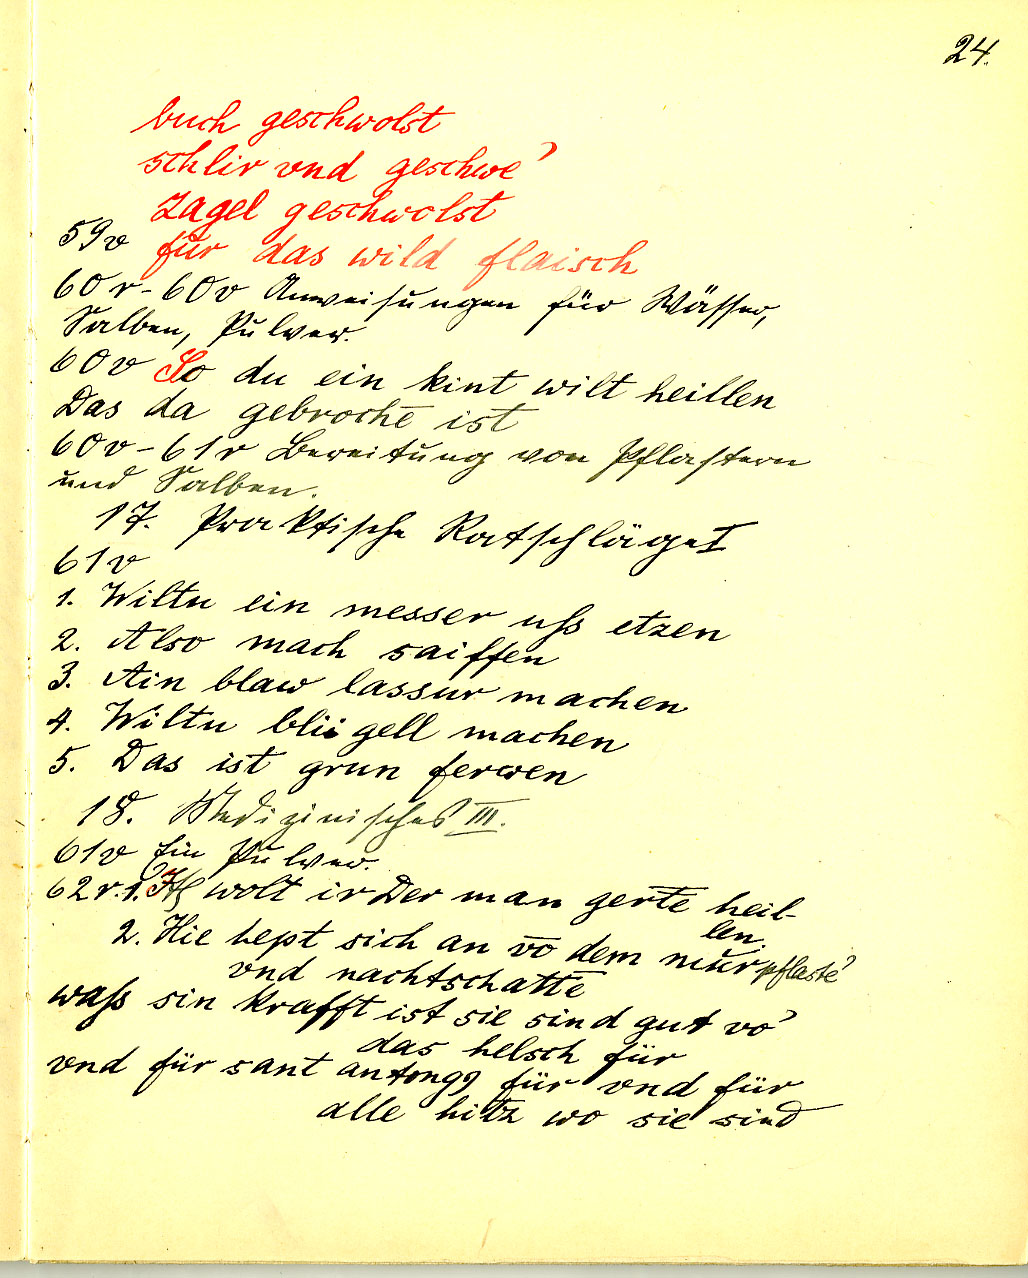 24.
buch geschwolst
schlir vnd geschwe'
zagel geschwolst
59v für das wild flaisch
60r-60v Anweisungen für Wässer,
Salben, Pulver.
60v So du ein kint wilt heillen
Das da gebrochē ist
60v-61r Bereitung von Pflastern
und Salben.
17. Praktische Ratschläge I
61v
1. Wiltu ein messer uß etzen
2. Also mach saiffen
3. Ain blaw lassur machen
4. Wiltu gell machen
5. Das ist grun ferwen
18. Medizinisches III.
61v Ein Pulver.
62r. 1. wolt ir Der man gertē heil-
len.
2. Hie hept sich an vō dem nŭrpflastē'
vnd nachtschattē
waß sin krafft ist sie sind gut vo'
das helsch für
vnd für sant antongꝯ für vnd für
alle hitz wo sie sind